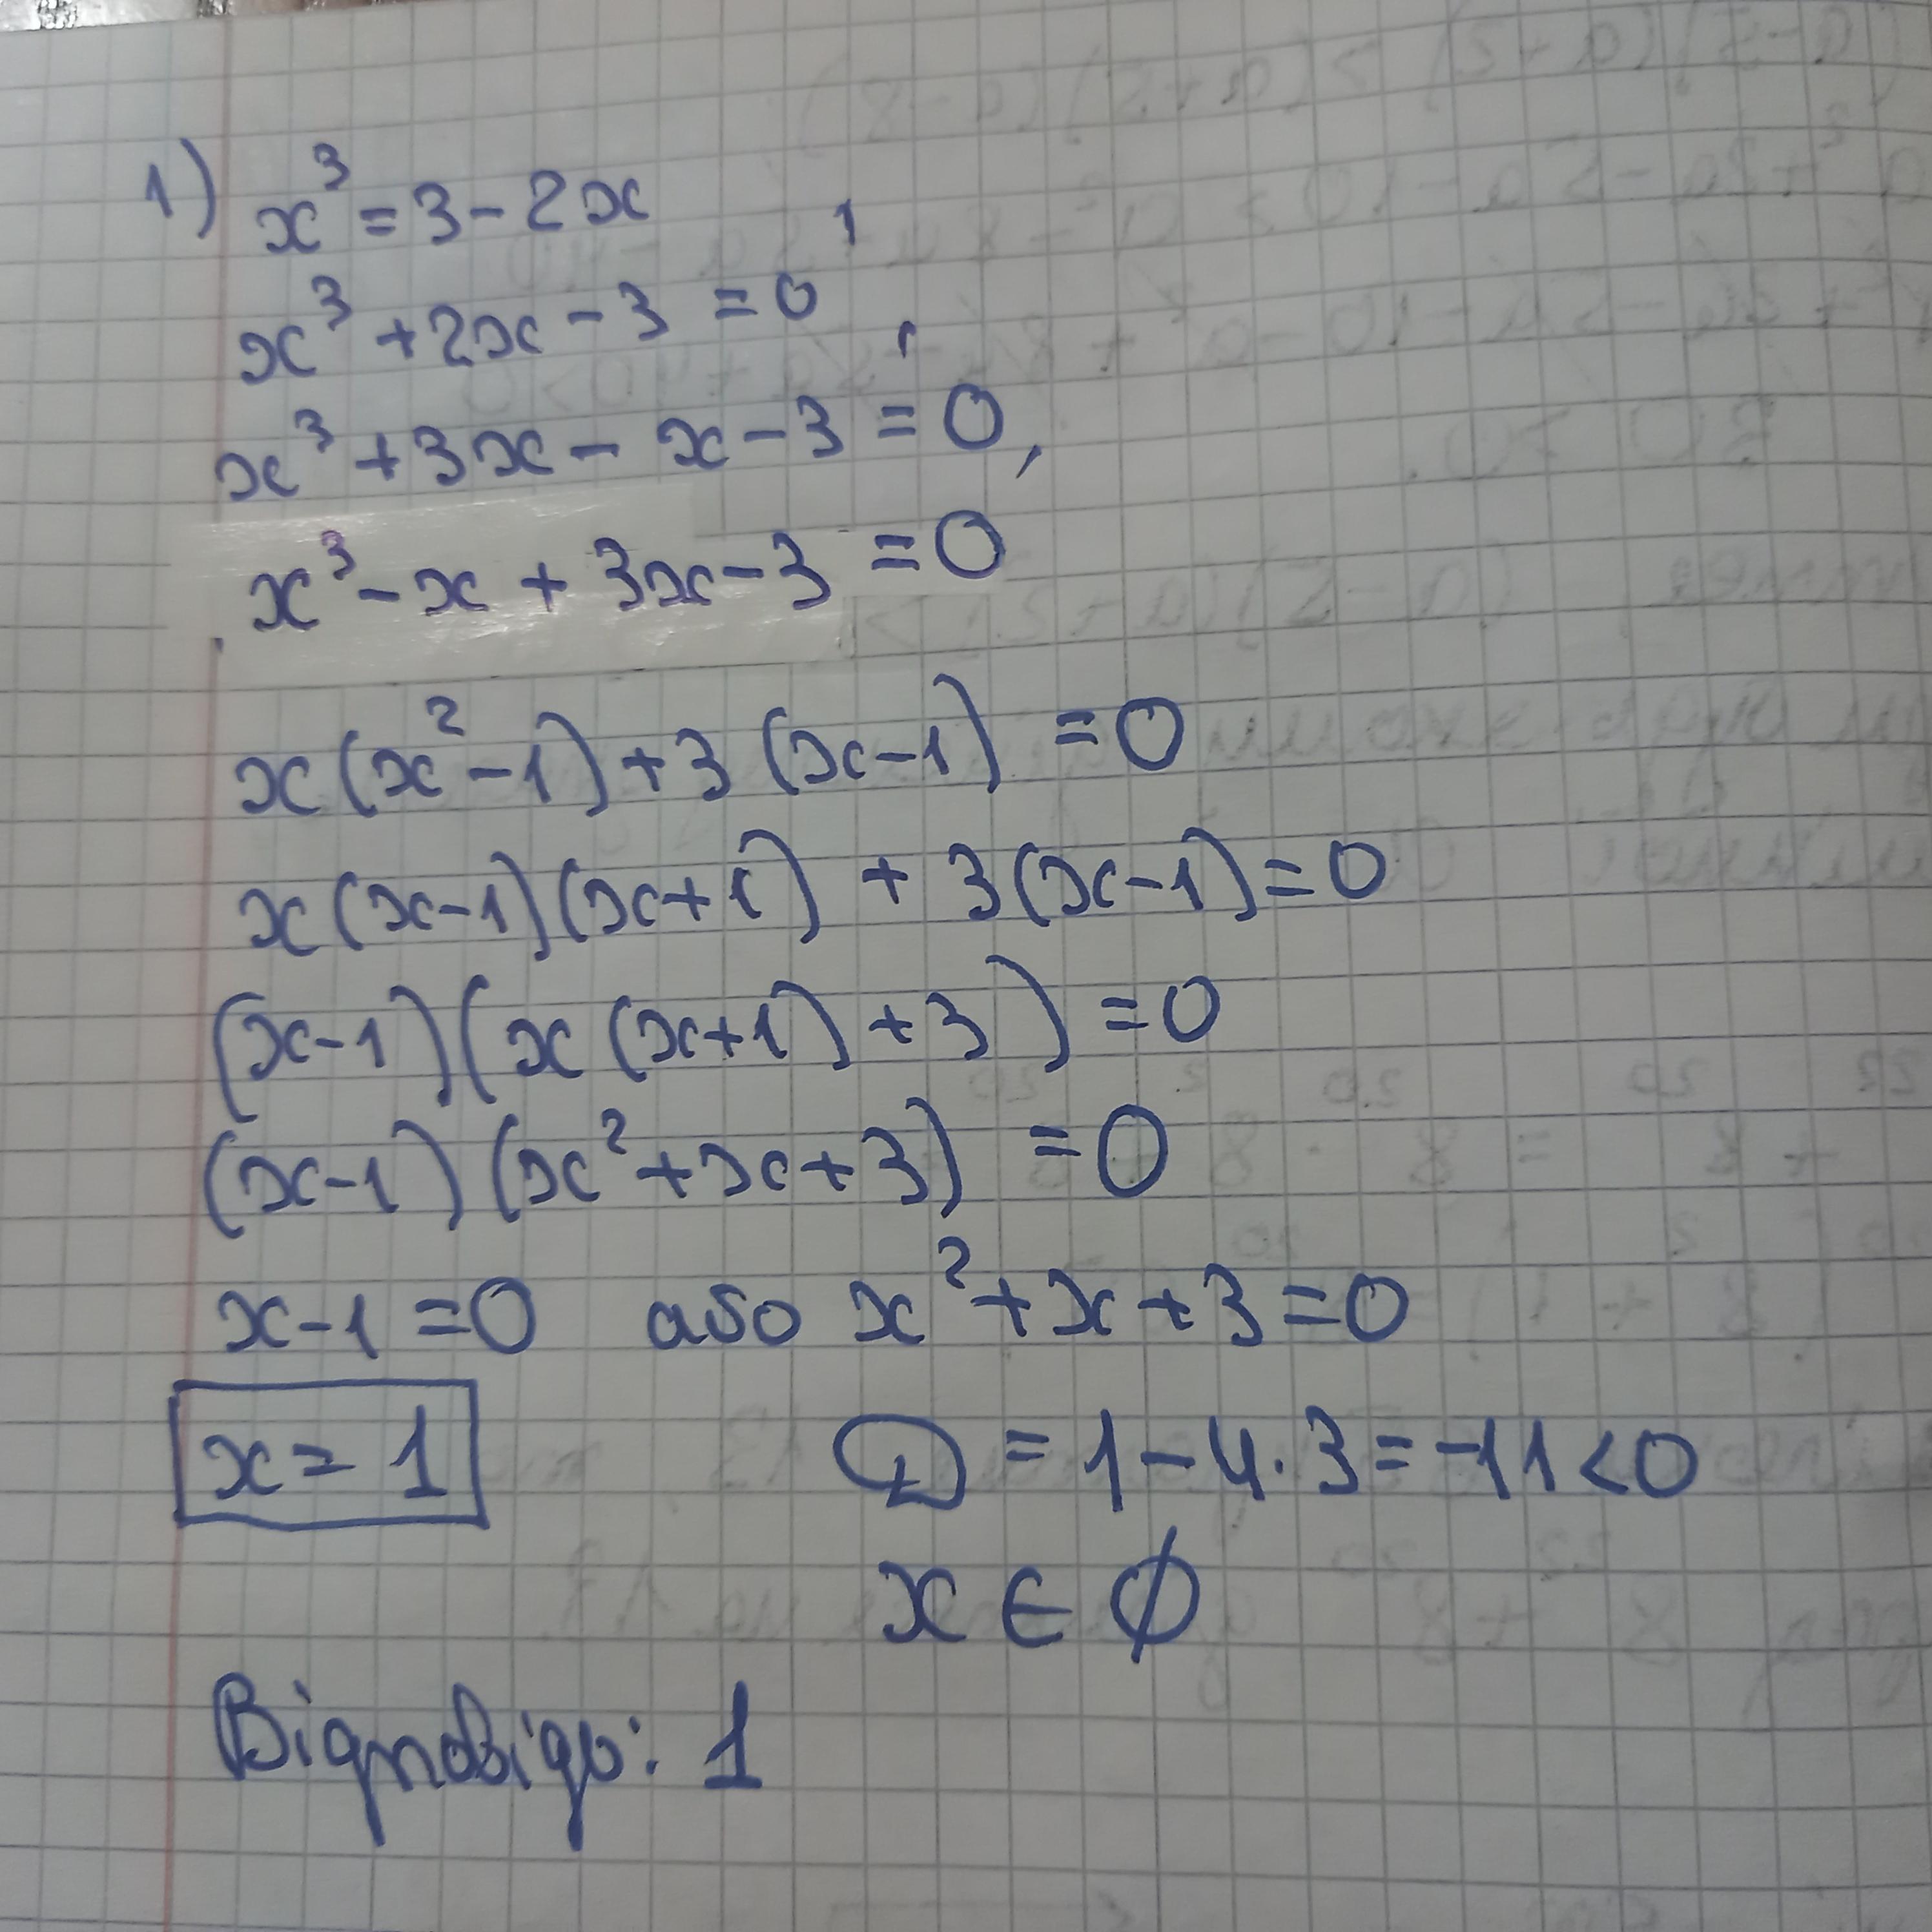 1) x³ = 3 - 2x
x³ + 2x - 3 = 0
x³ + 3x - x - 3 = 0,
x³ - x + 3x - 3 = 0
x(x² - 1) + 3(x - 1) = 0
x(x - 1)(x + 1) + 3(x - 1) = 0
(x - 1)(x(x + 1) + 3) = 0
(x - 1)(x² + x + 3) = 0
x - 1 = 0 або x² + x + 3 = 0
x = 1 D = 1 - 4 · 3 = -11 < 0
x ∈ ∅
Відповідь: 1